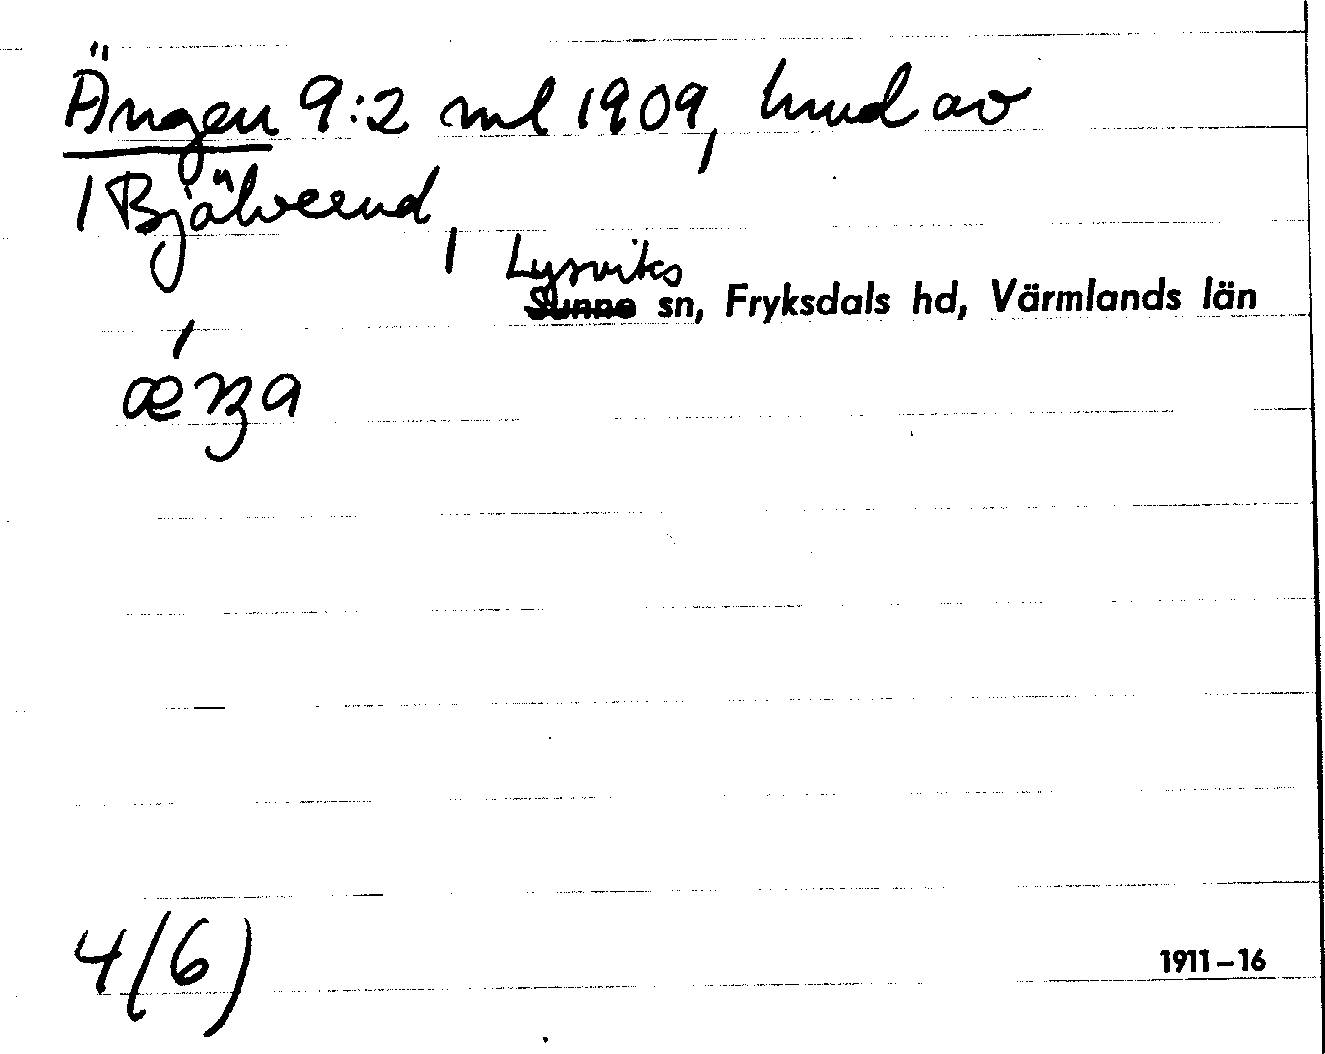 Ängen 9:2 ml 1909, hmd av
1 Bjälverud,
Lysviks
Sunne sn, Fryksdals hd, Värmlands län
4(6)
1911–16